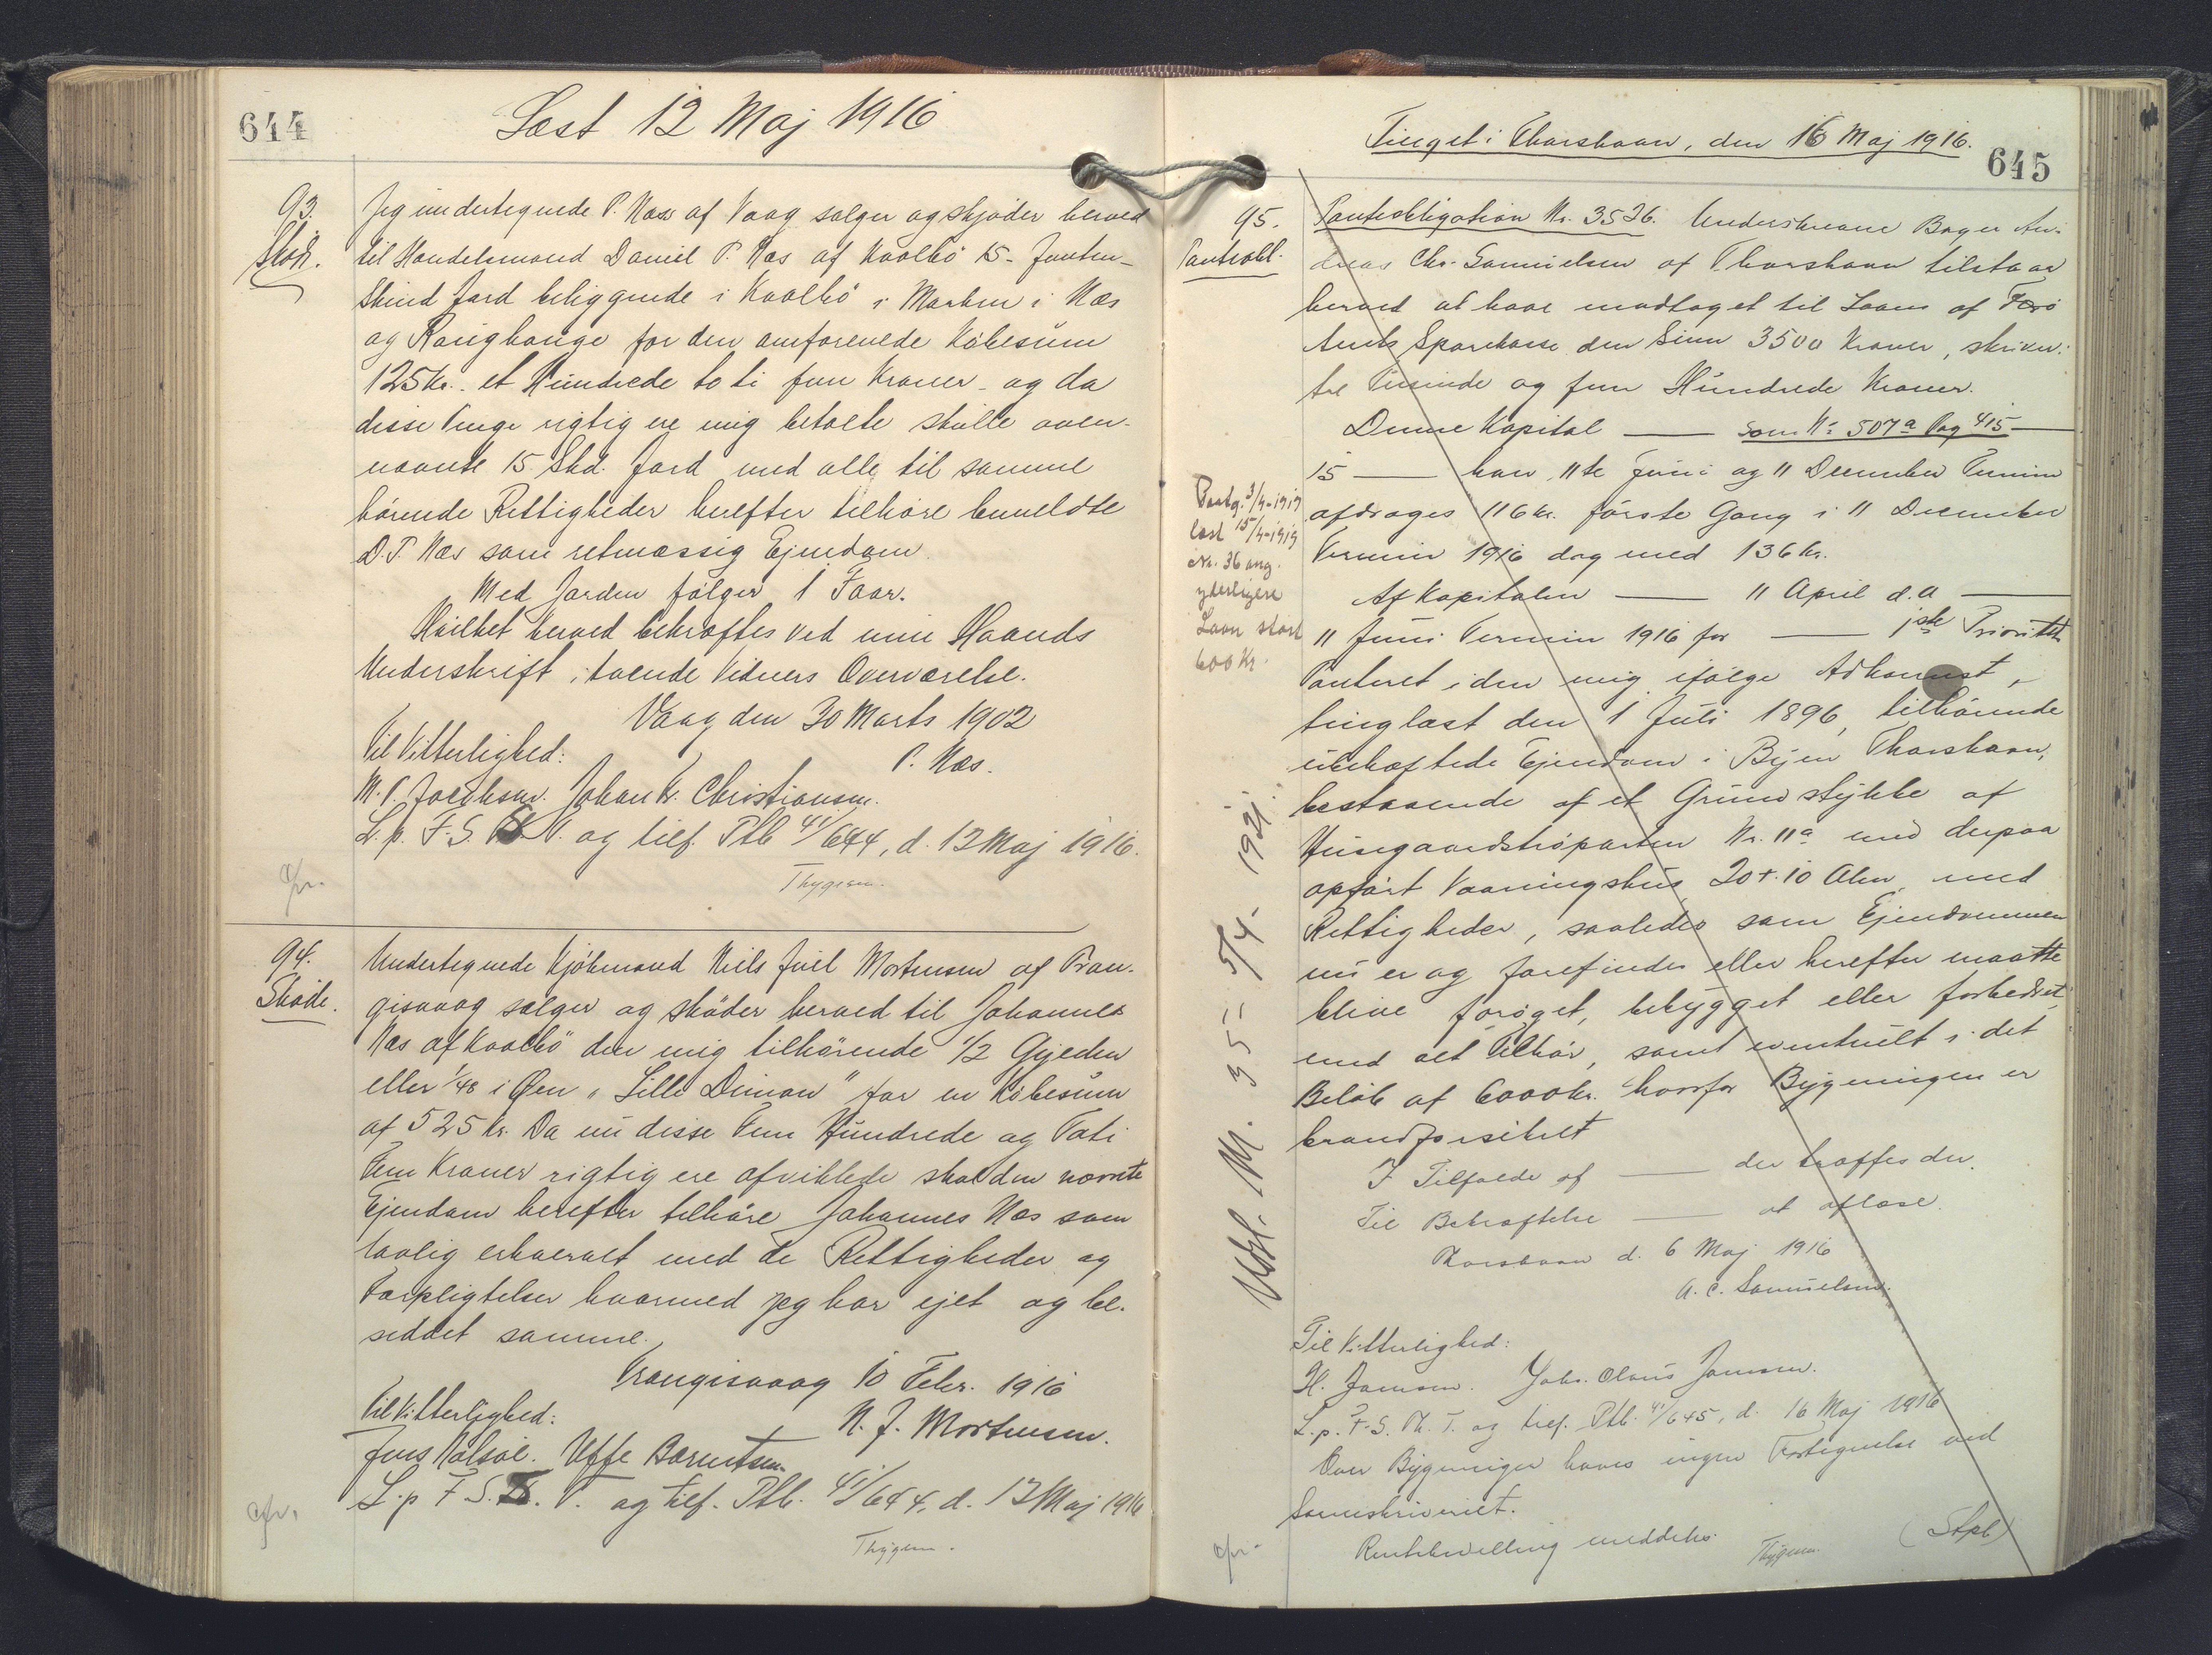 644
Læst 12 Maj 1916
93.
Skøde.
Jeg undertegnede P. Næs af Vaag sælger og skjøder herved
til Handelsmand Daniel P. Næs af Kvalbö 15 - femten -
Skind Jord beliggende i Kvalbö i Marken i Næs
og for den omforenede Köbesum
125 Kr. et Hundrede to ti fem Kroner - og da
disse Penge rigtig ere mig betalte skulle oven-
nævnte 15 Skd. Jord med alle til samme
hörende Rettigheder herefter tilhöre bemeldte
D.P. Næs som retmæssig Ejendom.
Med Jorden fölger 1 Faar.
Hvilket herved bekræftes ved min Haands
Underskrift i tvende Vidners Overværelse.
Vaag den 30 Marts 1902
P. Næs.
Til Vitterlighed:
M. P. Jacobsen. Johan Kr. Christiansen.
L. p. F. S. T. og tilf. Ptb 41/644, d. 12 Maj 1916.
Thygesen.
cfr.
94.
Skøde.
Undertegnede Kjöbmand Niels Juel Mortensen af Tran-
gisvaag sælger og sköder herved til Johannes
Næs af Kvalbö den mig tilhörende 1/2 Gylden
eller 1/48 i Øen "Lille Dimon" for en Köbesum
af 525 Kr. Da nu disse Fem Hundrede og Toti
Fem Kroner rigtig ere afviklede skal den nævnte
Ejendom herefter tilhöre Johannes Næs som
lovlig erhvervet med de Rettigheder og
Forpligtelser hvormed jeg har ejet og be-
siddet samme.
Trangisvaag 10 Febr. 1916
N. J. Mortensen.
Til Vitterlighed:
Jens Nolsöe. Uffe Berentsen.
L. p F. S. T. og tilf. Ptb. 41/644, d. 12 Maj 1916
Thygesen.
cfr.
Tinget i Thorshavn, den 16 Maj 1916.
645
95.
Panteobl.
Panteobligation Nr. 3526. Underskrevne Bager An-
dreas Chr. Samuelsen af Thorshavn tilstaar
herved at have modtaget til Laans af Færö
Amts Sparekasse den Sum 3500 Kroner, skriver:
tre Tusinde og fem Hundrede Kroner.
Denne Kapital — som Nr. 507a Pag 415 —
15 — hver 11te Juni og 11 December Termin
afdrages 116 kr. förste Gang i 11 December
Termin 1916 dog med 136 kr.
Af Kapitalen — 11 April d.A —
11 Juni Termin 1916 for — 1ste Prioritets
Panteret i den mig ifölge Adkomst,
tinglæst den 1 Juli 1896, tilhörende
ubehæftede Ejendom i Byen Thorshavn,
bestaaende af et Grundstykke af
Husegaardströparten Nr. 11a med derpaa
opfört Vaaningshus 20 + 10 Alen med
Rettigheder, saaledes som Ejendommen
nu er og forefindes eller herefter maatte
blive foröget, bebygget eller forbedret
med alt Tilhör, samt eventuelt i det
Belöb af 6000 kr. hvorfor Bygningen er
brandforsikret
I Tilfælde af — der træffes der.
Til Bekræftelse — at aflæse.
Thorshavn d. 6 Maj 1916
A. C. Samuelsen.
Til Vitterlighed:
H. Jensen. Johs. Claus Jensen.
L. p. F. S. Th. T. og tilf. Ptb. 41/645, d. 16 Maj 1916
Over Bygninger haves ingen Fortegnelse ved
Sorenskriveriet.
Rentebevilling meddelt.
Thygesen.
(Stpl)
cfr.
Pantg. 3/4-1919
læst 15/4-1919
Nr. 36 ang.
yderligere
Laan stort
600 Kr.
Udsl. M. 35 - 5/4 - 1921.